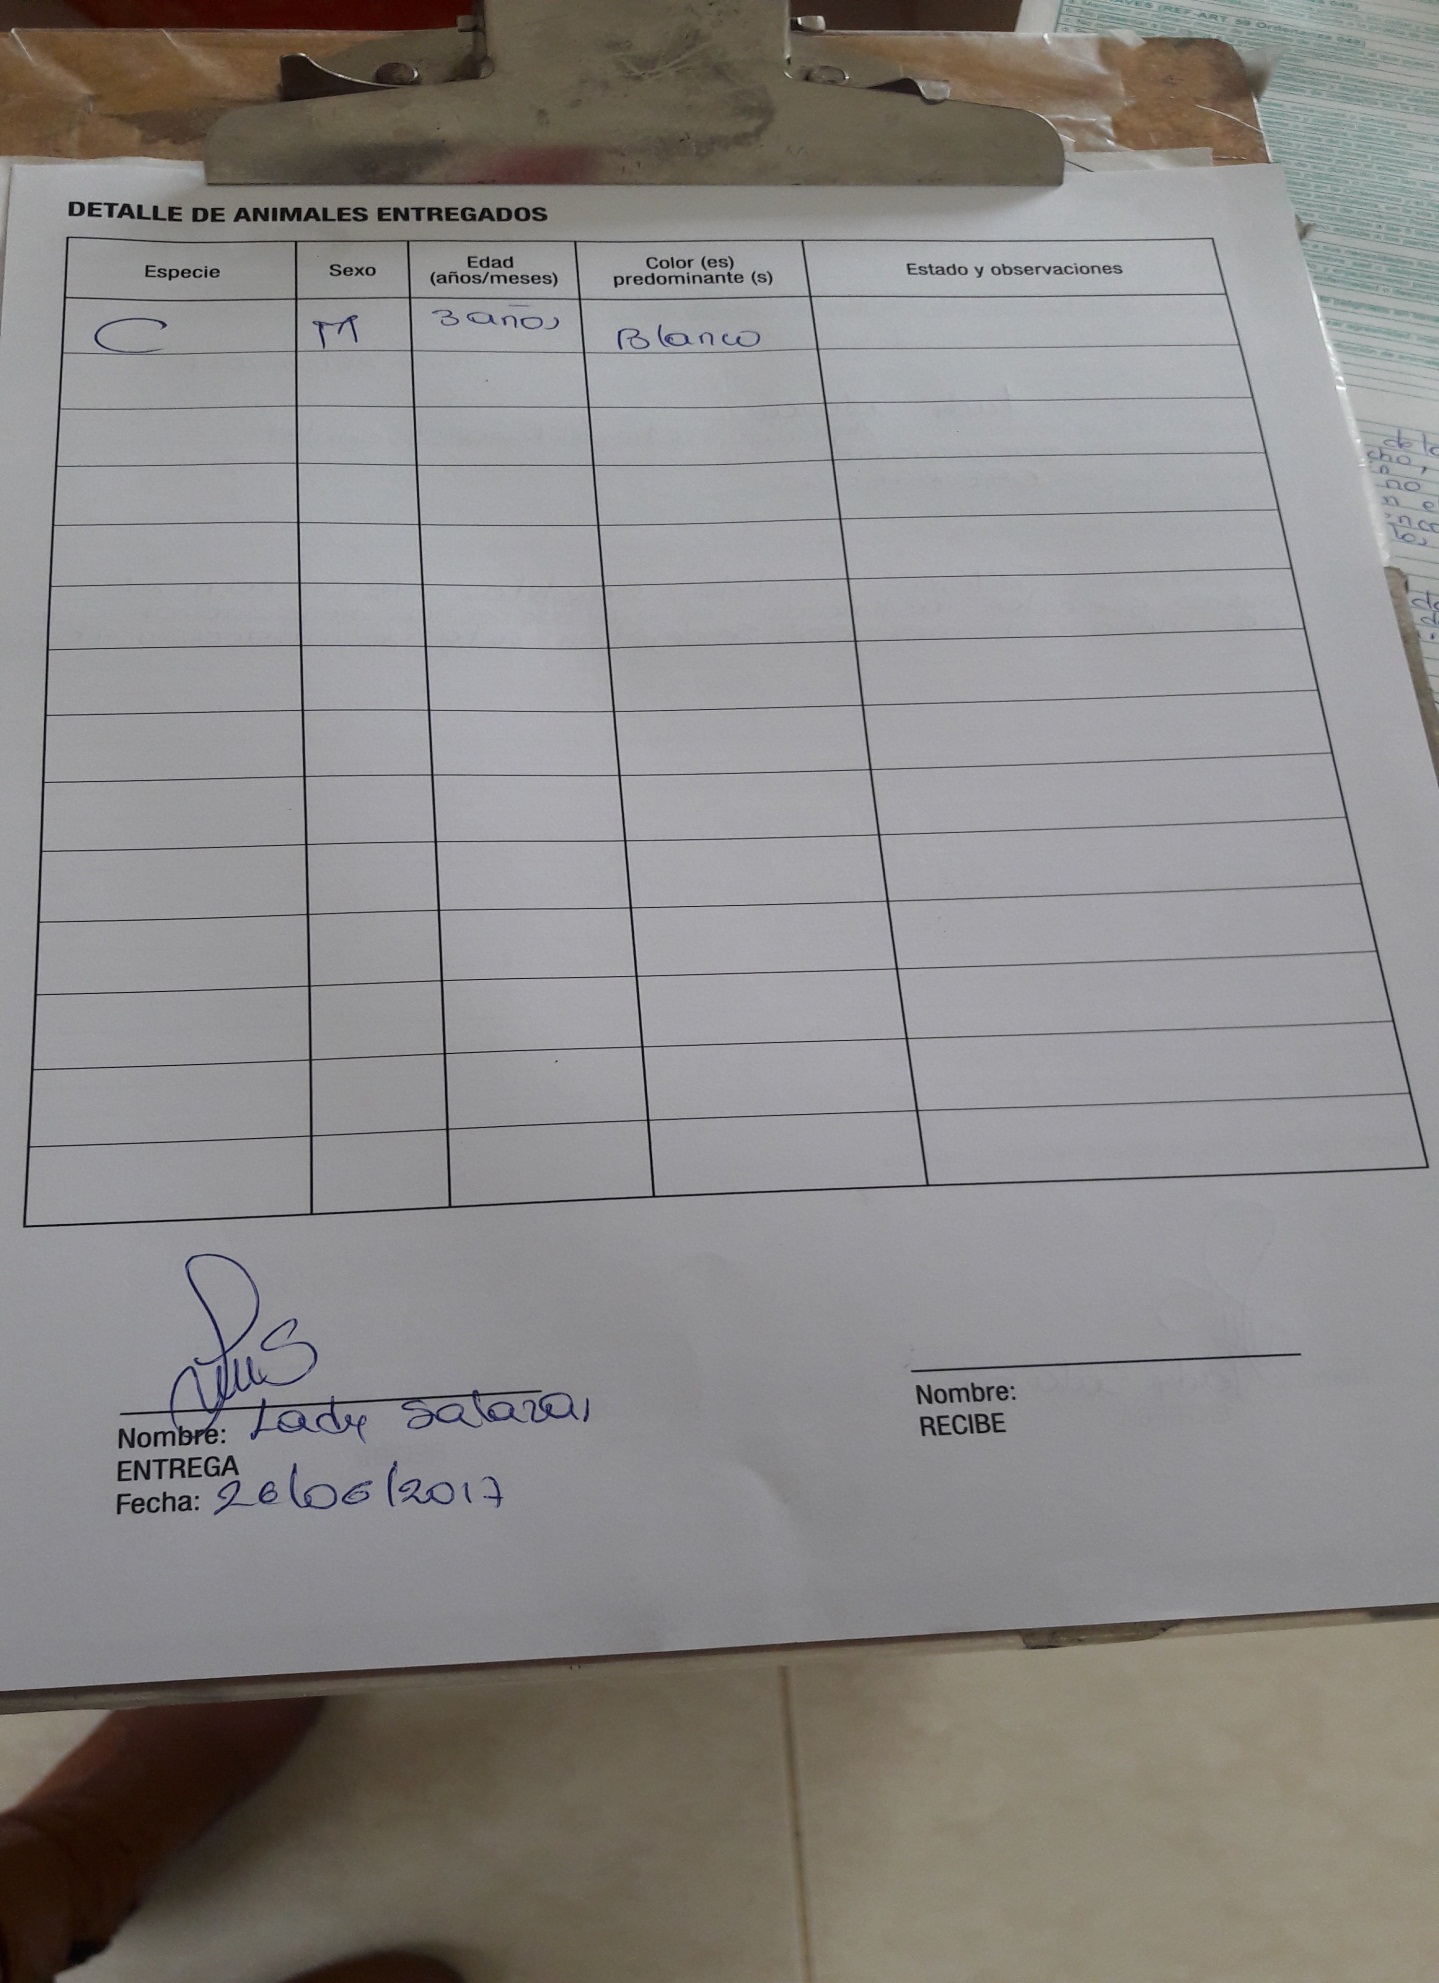 DETALLE DE ANIMALES ENTREGADOS
Especie Sexo Edad (años/meses) Color (es) predominante (s) Estado y observaciones
C M 3 años Blanco
Nombre: Lady Salazar
ENTREGA
Fecha: 26/06/2017
Nombre:
RECIBE